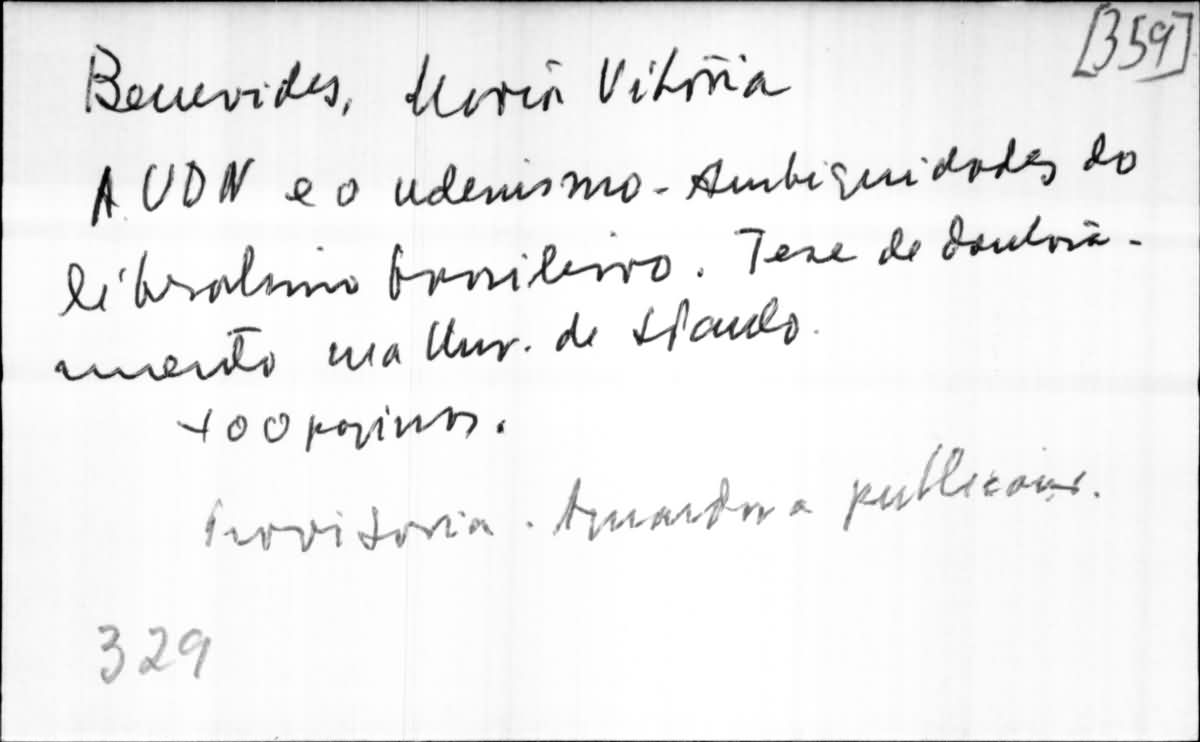 [359]
Benevides, Maria Vitória
A UDN e o udenismo - Ambiguidades do
liberalismo brasileiro. Tese de doutora-
mento na Univ. de S Paulo.
+00 paginas.
Provisoria. Aguardar a publicação.
329